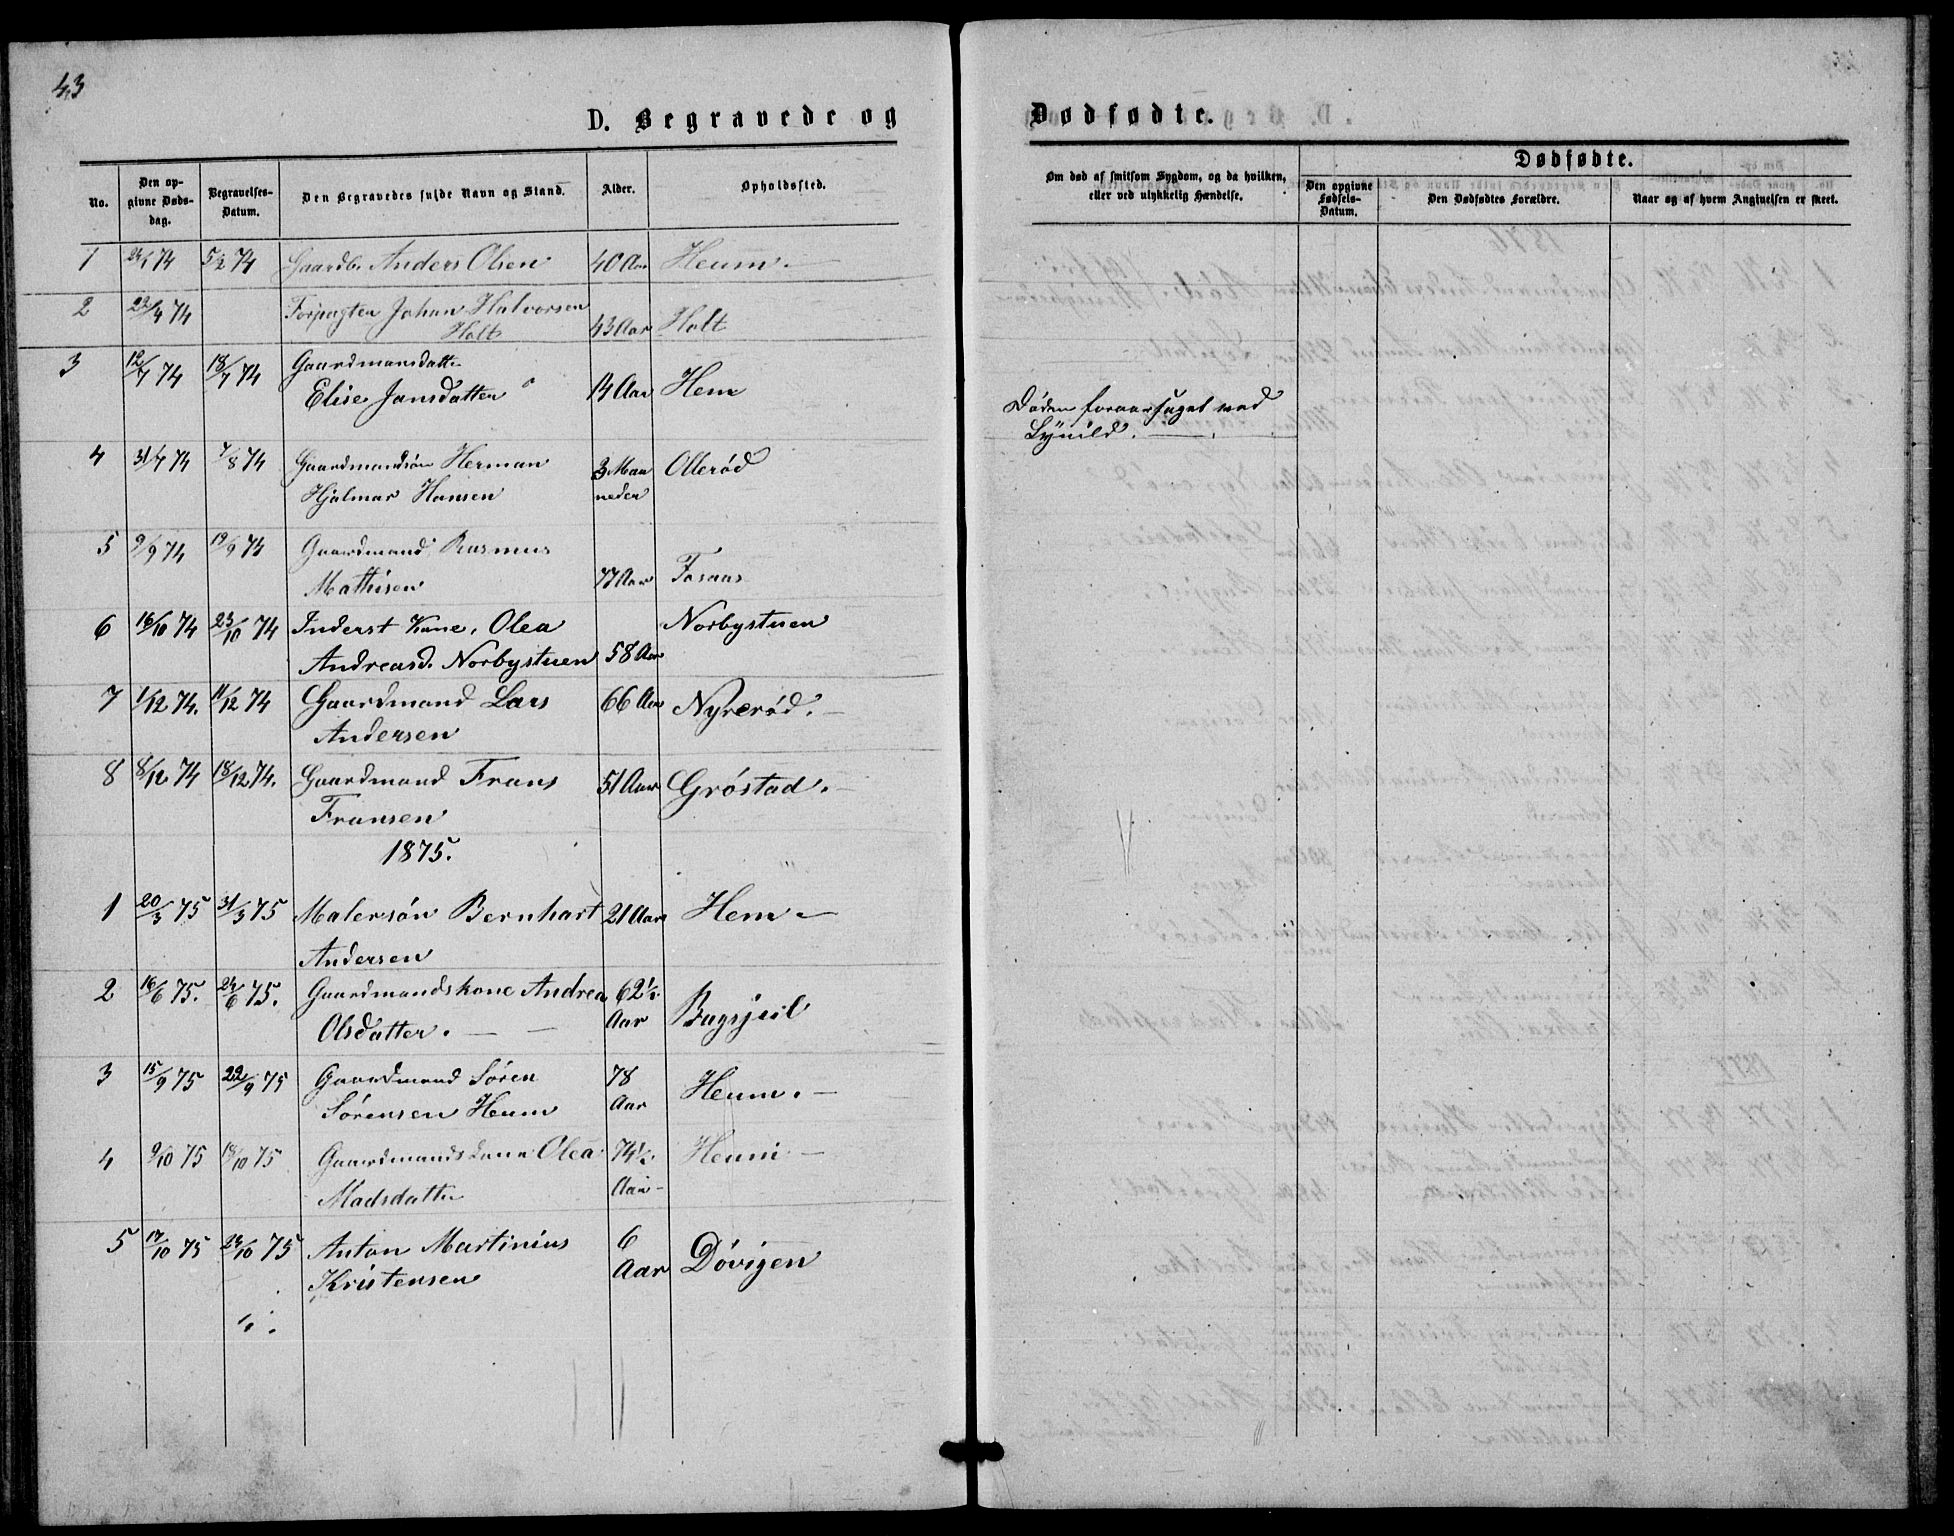 43
D. Begravede og
Dødfødte.
No.
Den op-
givne Døds-
dag.
Begravelses-
Datum.
Den Begravedes fulde Navn og Stand.
Alder.
Opholdssted.
Om død af smitsom Sygdom, og da hvilken,
eller ved ulykkelig Hændelse.
Dødfødte.
Den opgivne
Fødsels-
Datum.
Den Dødfødtes Forældre.
Naar og af hvem Angivelsen er skeet.
1 24/1 74 5/2 74 Gaardb. Anders Olsen 40 Aar Heum.
2 22/4 74 Forpagter Johan Halvorsen
Holt 43 Aar Holt
3 12/7 74 18/7 74 Gaardmansdatter
Elise Jansdatter 14 Aar Hem
Døden foraarsaget ved
Lynild.
4 31/7 74 7/8 74 Gaardmandsøn Herman 3 Maa Ollerød
Hjalmar Hansen neder
5 9/9 74 19/9 74 Gaardmand Rasmus
Mathisen 77 Aar Fosaas
6 16/10 74 23/10 74 Inderst Kone, Olea Norbystuen
Andreasd. Norbystuen 58 Aar
7 1/12 74. 11/12 74 Gaardmand Lars 66 Aar Nyrerød.
Andersen
8 8/12 74 18/12 74. Gaardmand Frans 51 Aar Gröstad.
Fransen
1875.
1 20/3 75 31/3 75 Malersön Bernhart 21 Aar Hem
Andersen
2 16/6 75. 24/6 75. Gaardmandskone Andrea 62½
Olsdatter. Aar
3 15/9 75 22/9 75 Gaardmand Sören 78 Heum.
Sörensen Heum Aar
4 9/10 75 18/10 75 Gaardmands kone Olea 74½ Heum
Madsdatter Aar
5 17/10 75 24/10 75 Anton Martinius 6 Dövigen
Kristensen Aar